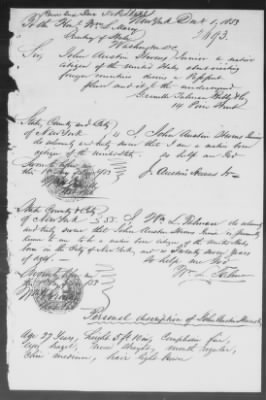 New York Dec 1, 1853
To the Hon. Wm L. Marcy
Secretary of State 1493.
Washington DC
Sir, John Austin Stevens Junior a native
citizen of the United States about visiting
foreign countries desires a Passport
please send it to the undersigned
14 Pine Street
State, County and City
of New York I, John Austin Stevens Junior
do solemnly and duly swear that I am a native born
citizen of the United States so help me God
J. Austin Stevens Jr
Sworn before me
this 1853
State County & City
of New York SS. I Wm L. Felman do solemnly
and duly swear that John Austin Stevens Junior is personally
known to me to be a native born citizen of the United States
born in the City of New York, and is twenty seven years
of age. So help me God
Sworn before me
1853
Wm L
Personal description of John Austin Stevens Jr
Age 27 Years, height 5 ft 10 in, Complexion fair,
Eyes hazel, Nose straight, mouth regular,
Chin medium, hair light brown